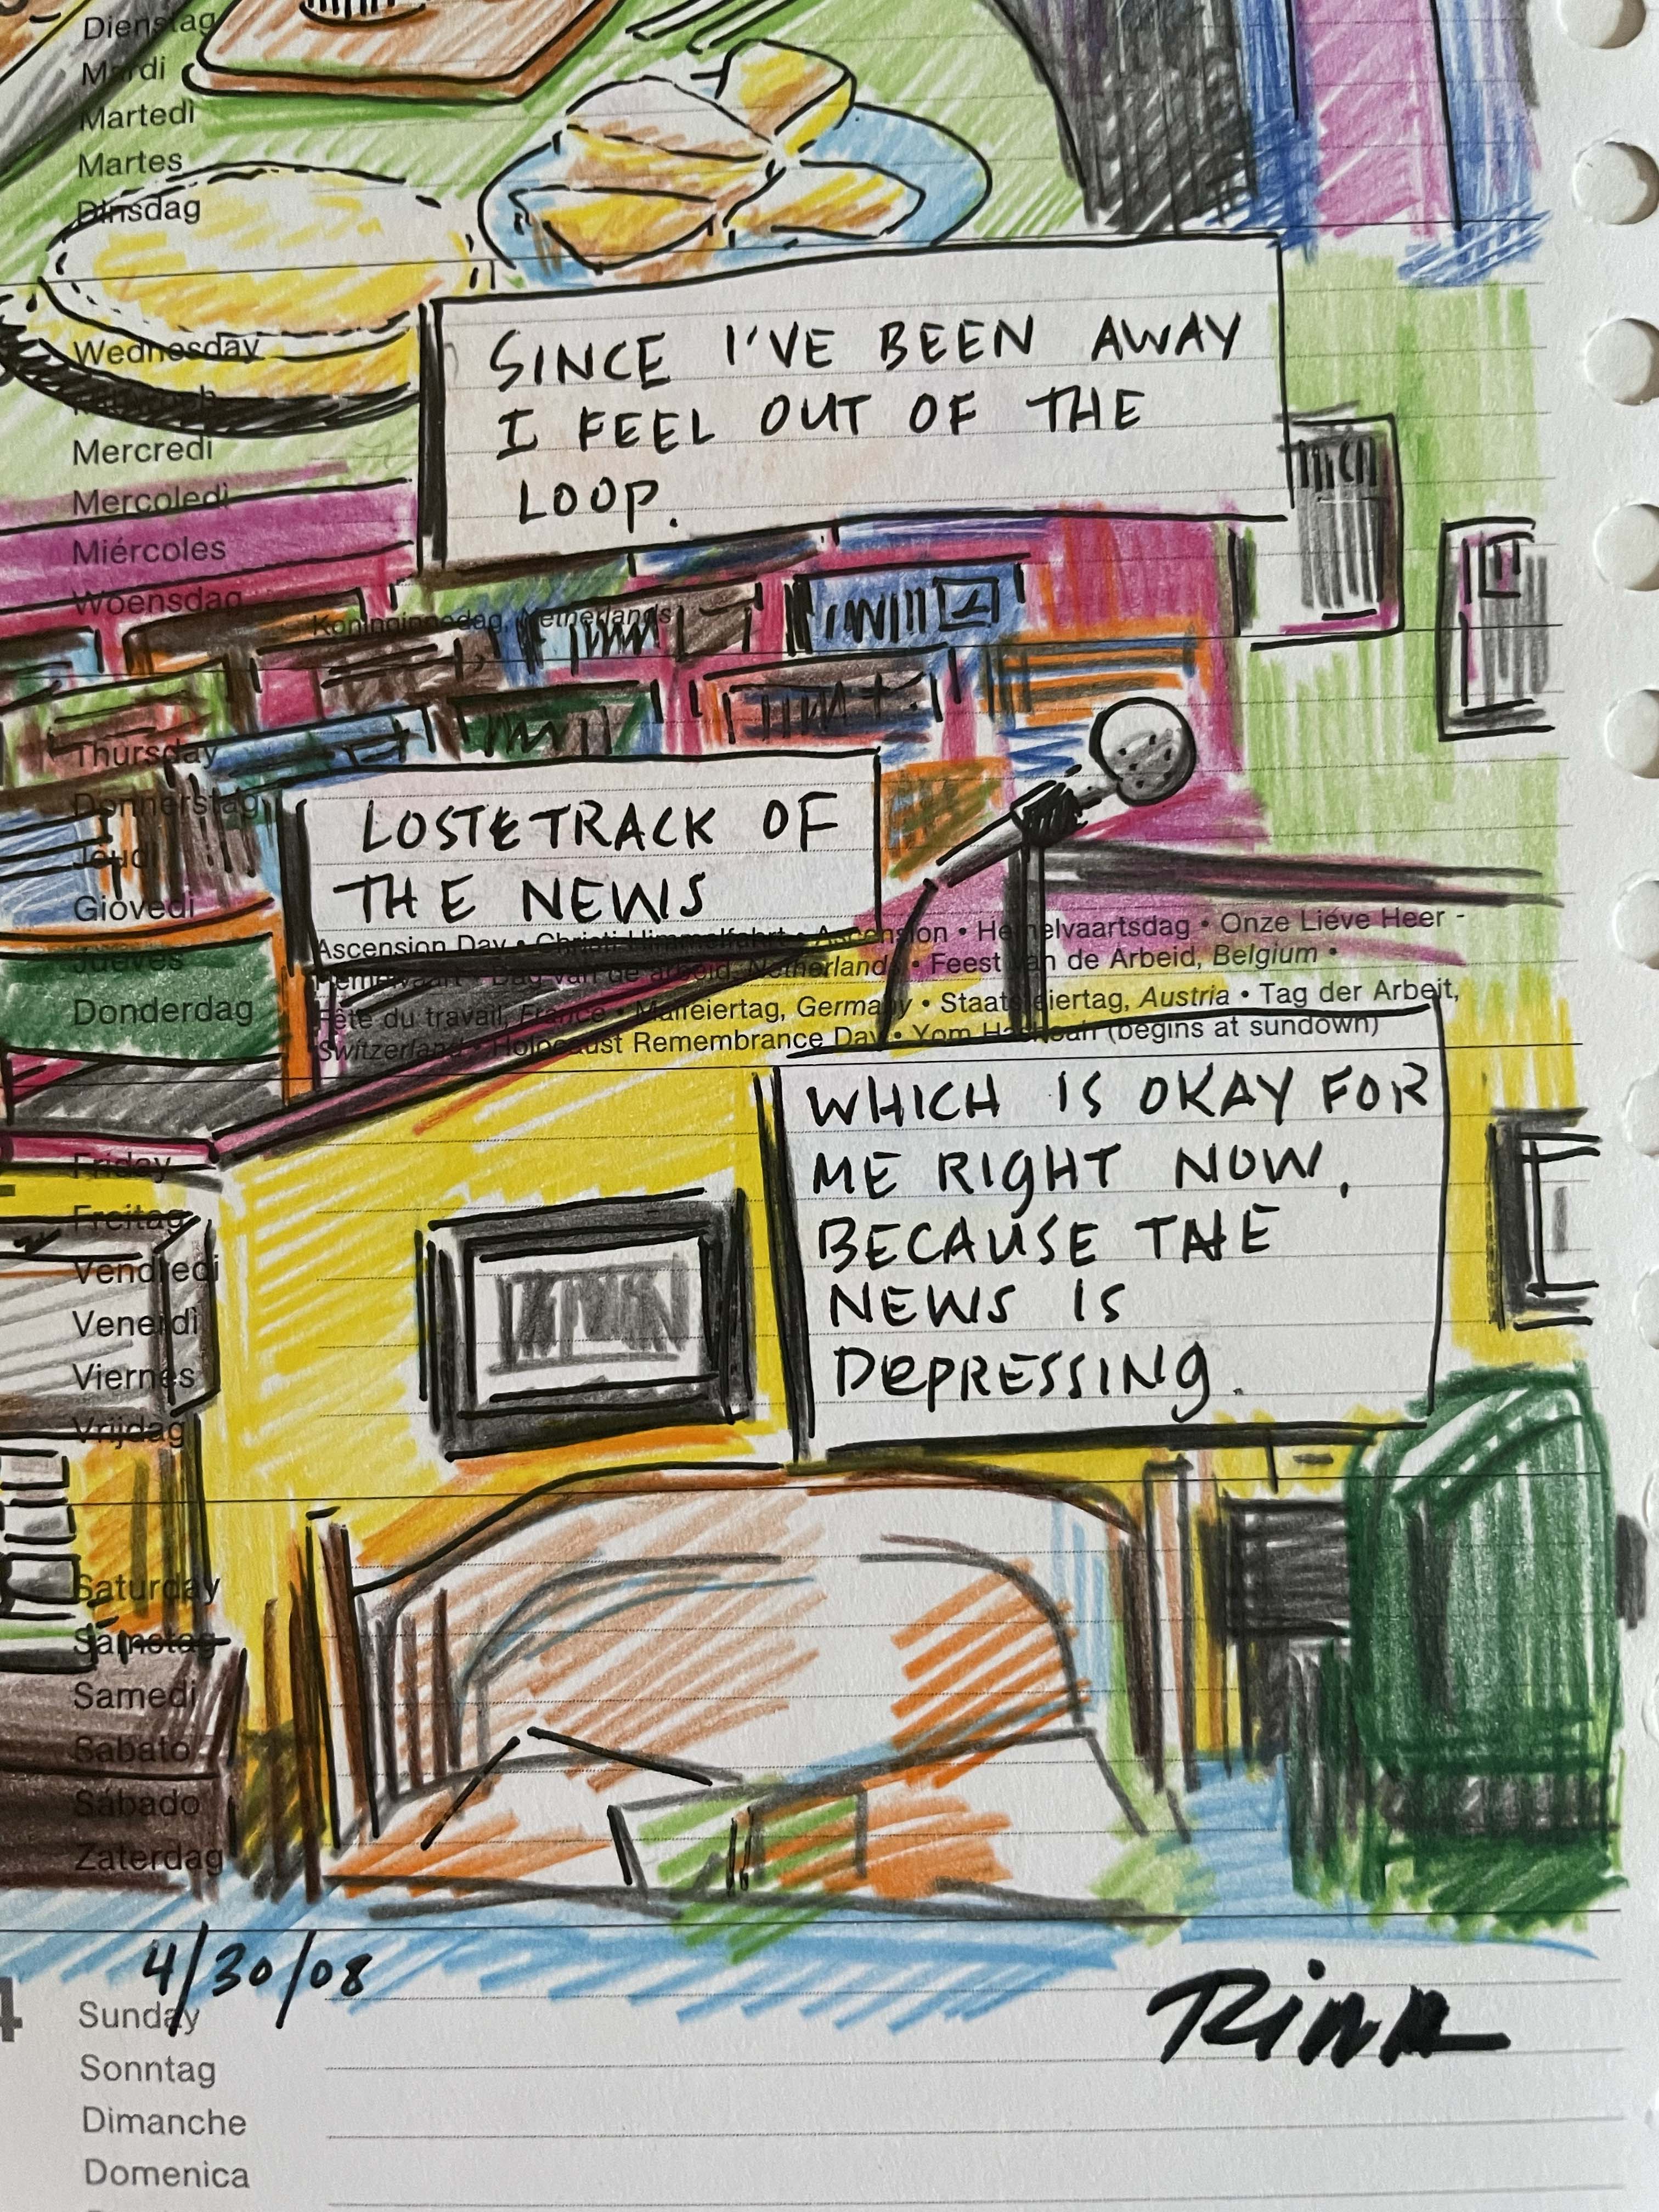 Dienstag
Mardi
Martedì
Martes
Dinsdag
SINCE I'VE BEEN AWAY
I FEEL OUT OF THE
LOOP.
Wednesday
Mittwoch
Mercredi
Mercoledì
Miércoles
Woensdag
Koninginnedag, Netherlands
Thursday
Donnerstag
Jeudi
Giovedì
Jueves
Donderdag
LOSTE TRACK OF
THE NEWS
Ascension Day • Christi Himmelfahrt • Ascension • Hemelvaartsdag • Onze Liéve Heer -
Hemelvaart • Dag van de arbeid, Netherlands • Feest van de Arbeid, Belgium •
Fête du travail, France • Maifeiertag, Germany • Staatsfeiertag, Austria • Tag der Arbeit,
Switzerland • Holocaust Remembrance Day • Yom Hashoah (begins at sundown)
WHICH IS OKAY FOR
ME RIGHT NOW,
BECAUSE THE
NEWS IS
DEPRESSING.
Friday
Freitag
Vendredi
Venerdì
Viernes
Vrijdag
Saturday
Samstag
Samedi
Sabato
Sábado
Zaterdag
4/30/08
4
Sunday
Sonntag
Dimanche
Domenica